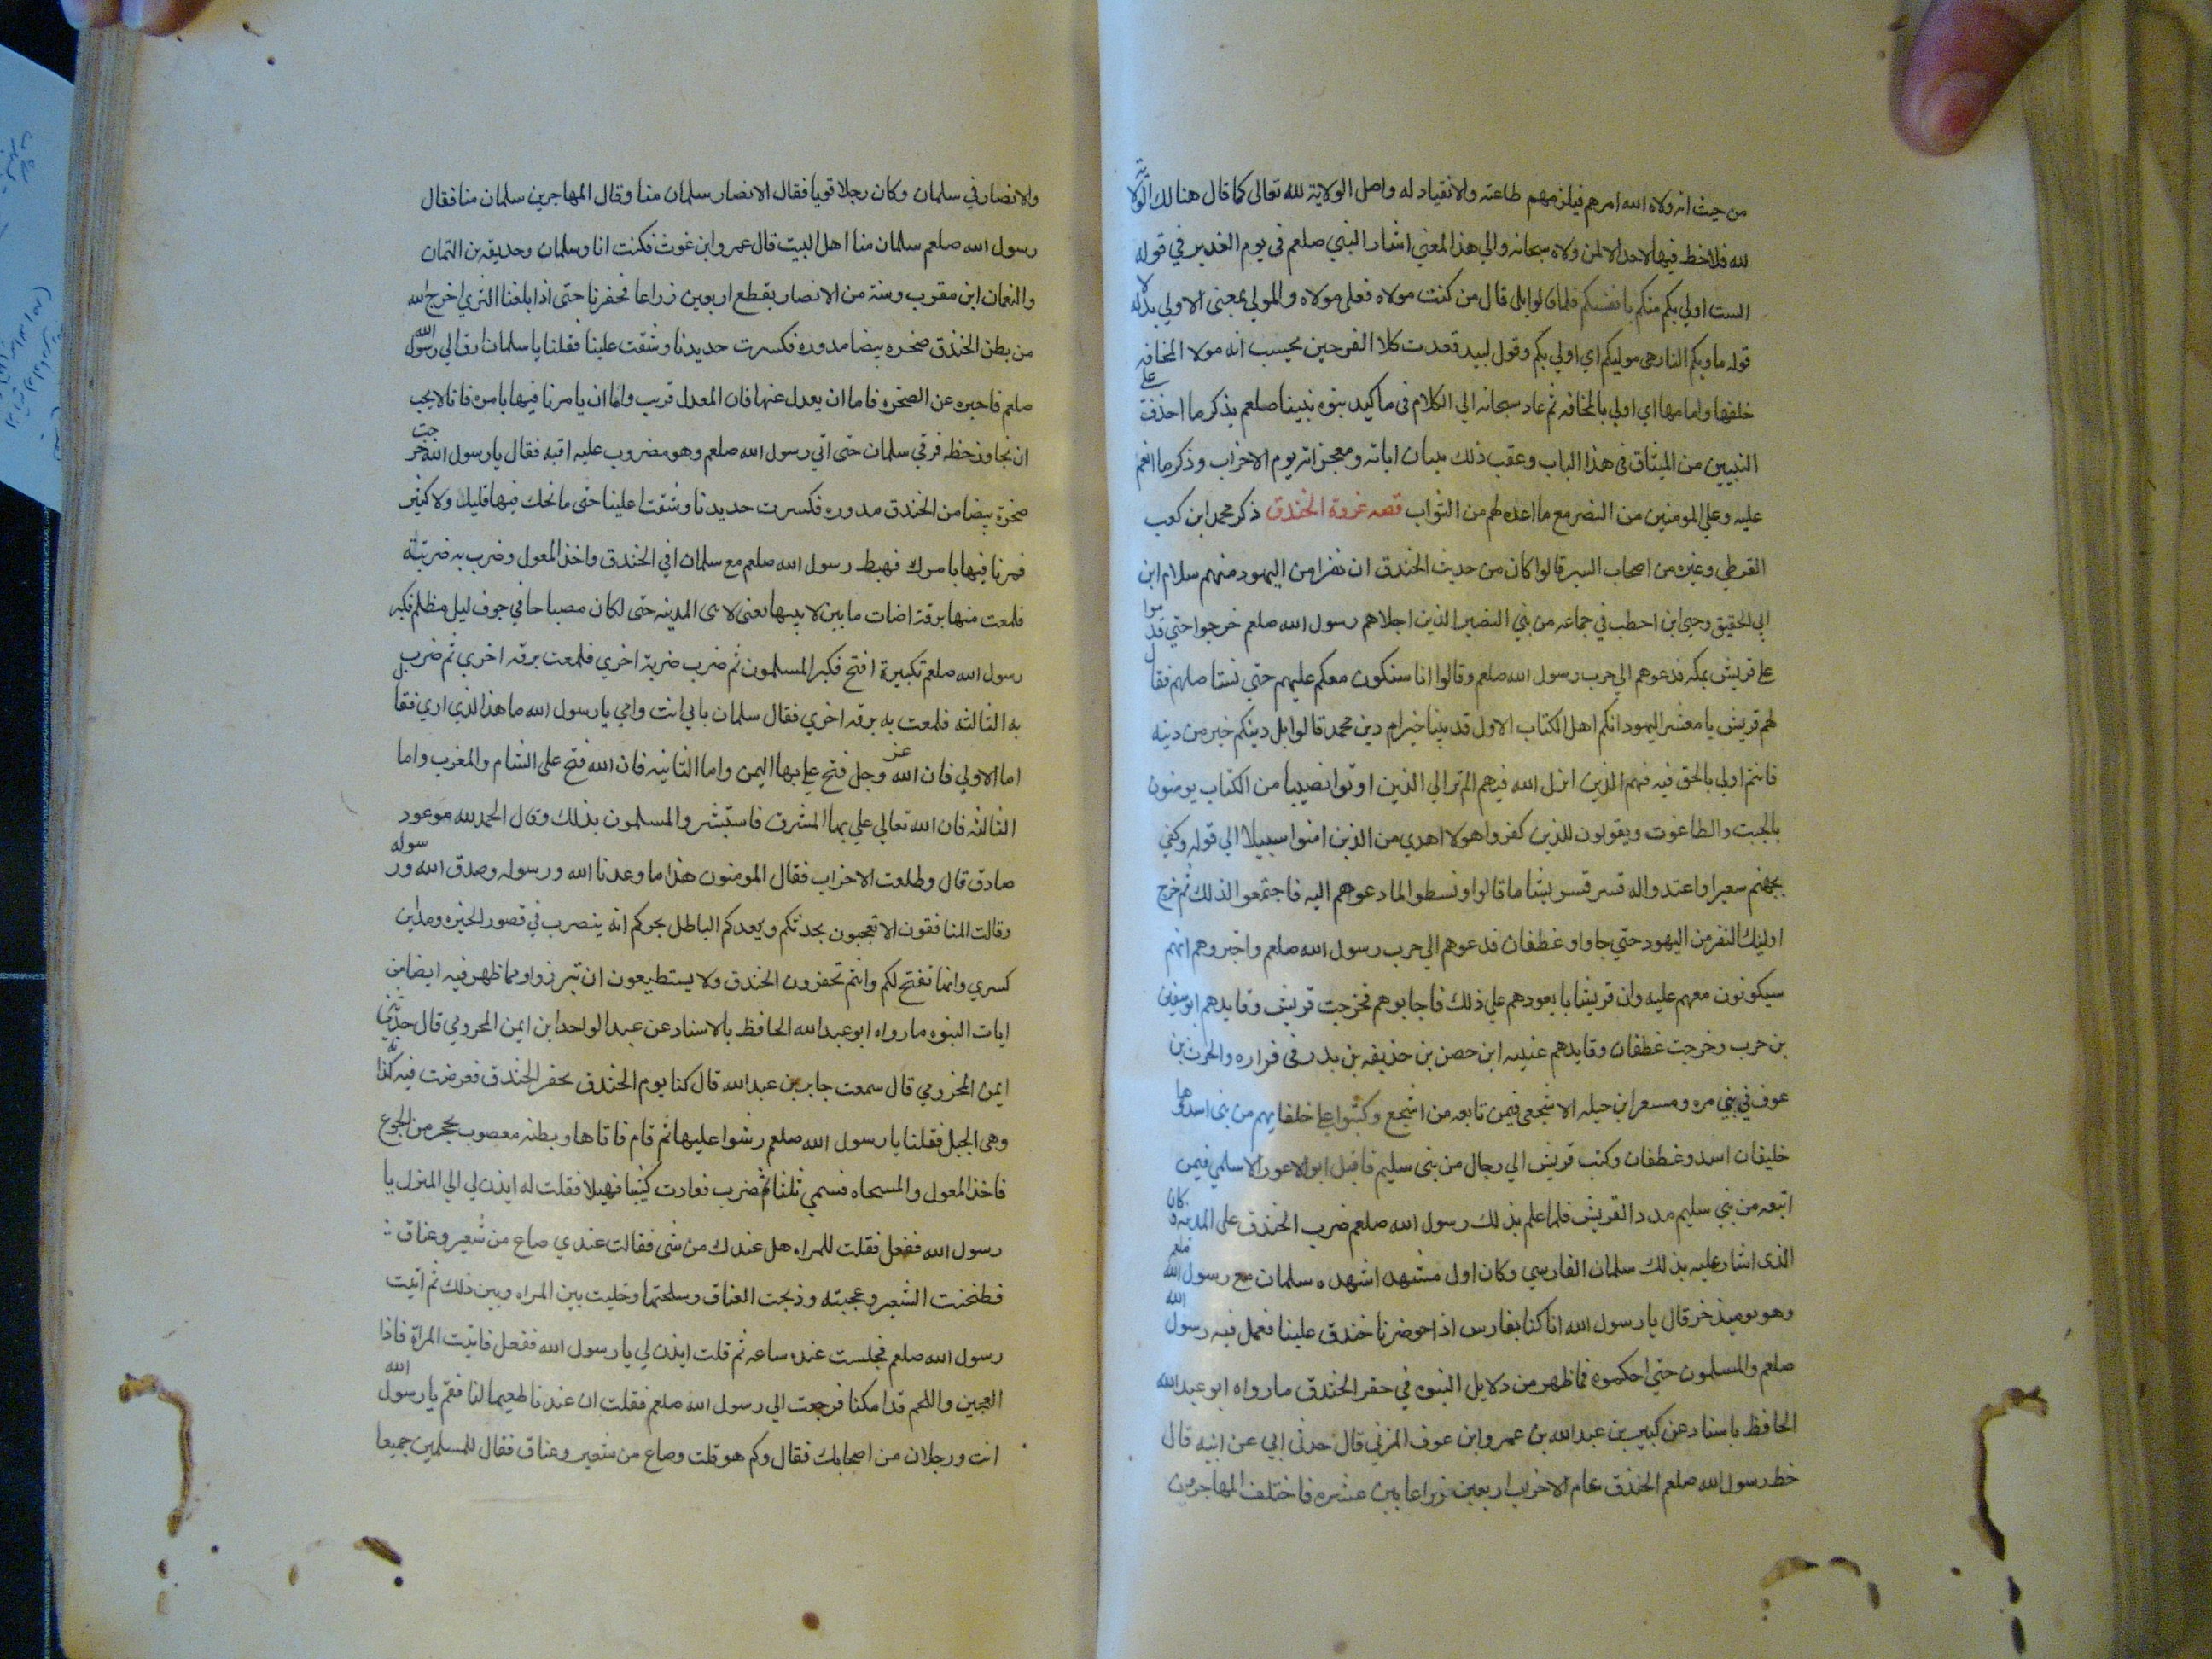 من حيث انه ولاه الله امرهم فيلزمهم طاعته والانقياد له واصل الولاية لله تعالى كما قال هنالك الولاية
لله فلا حظ فيها لاحد الا لمن ولاه سبحانه والي هذا المعني اشار النبي صلعم في يوم الغدير في قوله
الست اولي بكم منكم بانفسكم فلما قالوا بلي قال من كنت مولاه فعلي مولاه والمولي بمعنى الاولي بدلالة
قوله ماويكم النار هى موليكم اي اولي بكم وقول لبيد فغدت كلا الفرجين يحسب انه مولا المخافه
خلفها وامامها اي اولي بالمخافه ثم عاد سبحانه الي الكلام في تاكيد نبوه نبينا صلعم بذكر ما اخذ علي
النبيين من الميثاق في هذا الباب وعقب ذلك ببيان اياته ومعجزاته يوم الاحزاب وذكر ما انعم
عليه وعلي المومنين من النصر مع ما اعده لهم من الثواب قصه غزوة الخندق ذكر محمد ابن كعب
القرظي وغيره من اصحاب السير قالوا كان من حديث الخندق ان نفرا من اليهود منهم سلام ابن
ابي الحقيق وحيى ابن احطب في جماعه من بني النضير الذين اجلاهم رسول الله صلعم خرجوا حتي قدموا
على قريش بمكه فدعوهم الي حرب رسول الله صلعم وقالوا انا سنكون معكم عليهم حتي نستاصلهم فقال
لهم قريش يا معشر اليهود انكم اهل الكتاب الاول قديننا خير ام دين محمد قالوا بل دينكم خير من دينه
فانتم اولي بالحق فيه فهم الذين انزل الله فيهم الم تر الي الذين اوتوا نصيبا من الكتاب يومنون
بالجبت والطاغوت ويقولون للذين كفروا هولا اهدي من الذين امنوا سبيلا الي قوله وكفي
بجهنم سعيرا واعتدوا له فسر قريشا ما قالوا ونسطوا لما دعوهم اليه فاجتمعوا لذلك ثم خرج
اوليك النفر من اليهود حتي جاوا وغطفان فدعوهم الي حرب رسول الله صلعم واخبروهم انهم
سيكونون معهم عليه وان قريشا بايعودهم علي ذلك فاجابوهم فخرجت قريش وقايدهم ابوسفين
بن حرب وخرجت غطفان وقايدهم عنيبه ابن حصن بن حذيفه بن بدر في فزاره والحرث بن
عوف في بني مره ومسعر ابن حيله الاشجعي فيمن تابعه من اشجع وكتبوا علي خلفايهم من بني اسد وهما
خليفان اسد وغطفان وكتب قريش الي رجال من بني سليم فاقبل ابوالاعور الاسلمي فيمن
اتبعه من بني سليم مددا لقريش فلما علم بذلك رسول الله صلعم ضرب الخندق على المدينه وكان
الذي اشار عليه بذلك سلمان الفارسي وكان اول مشهد اشهده سلمان مع رسول الله صلعم
وهو يوميذ حر قال يا رسول الله انا كنا بفارس اذا حوضرنا خندق علينا فعمل فيه رسول الله
صلعم والمسلمون حتي احكموه فما ظهر من دلايل النبوه في حفر الخندق ما رواه ابو عبدالله
الحافظ باسناد عن كبير بن عبدالله بن عمرو ابن عوف المزني قال حدثني ابي عن ابيه قال
خط رسول الله صلعم الخندق عام الاحزاب اربعين ذراعا بين عشره فاختلف المهاجرين
والانصار في سلمان وكان رجلا قويا فقال الانصار سلمان منا وقال المهاجرين سلمان منا فقال
رسول الله صلعم سلمان منا اهل البيت قال عمرو ابن غوث فكنت انا وسلمان وحديفه بن التمان
والنعمان ابن مقوب وستة من الانصار بقطع اربوين زراعا فحفرنا حتى اذا بلغنا الثري اخرج الله
من بطن الخندق صخره بيضا مدوره فكسرت حديدنا وشقت علينا فقلنا يا سلمان ارق الي رسول الله
صلعم فاخبره عن الصخره فاما ان يعدل عنها فان المعدل قريب واما ان يامرنا فيها بامره فانا لا يجب
ان نجاوز خطه فرقي سلمان حتى اتي رسول الله صلعم وهو مضروب عليه اقبه فقال يا رسول الله خرجت
صخرة بيضا من الخندق مدوره فكسرت حديدنا وشقت علينا حتى ما نحك فيها قليل ولا كثير
فمرنا فيها بامرك فهبط رسول الله صلعم مع سلمان افي الخندق واخذ المعول وضرب به ضربة
فلمعت منها برقة اضات ما بين لابيتها يعنى لابتى المدينه حتى لكان مصباحا في جوف ليل مظلم فكبر
رسول الله صلعم تكبيرة افتح فكبر المسلمون ثم ضرب ضربة اخري فلمعت برقه اخري ثم ضرب
به الثالثه فلمعت به برقه اخري فقال سلمان بابي انت وامي يا رسول الله ما هذا الذي اري فقال
اما الاولي فان الله عز وجل فتح علي بها اليمن واما الثانيه فان الله فتح علي الشام والمغرب واما
الثالثه فان الله تعالي علي بها المشرق فاستبشروا المسلمون بذلك وقال الحمدلله موعود
صادق قال وطلعت الاحزاب فقال المومنون هذا ما وعدنا الله ورسوله وصدق الله ورسوله
وقالت المنافقون الا تعجبون يحدثكم ويعدكم الباطل يخبركم انه يبصر في قصور الحيره ومداين
كسري وانها تفتح لكم وانتم تحفرون الخندق ولا يستطيعون ان تبرزوا ومما ظهر فيه ايضا من
ايات النبوه ما رواه ابو عبدالله الحافظ بالاسناد عن عبد الواحد ابن ايمن المخرومي قال حدثني
ايمن المخرومي قال سمعت جابر بن عبدالله قال كنا يوم الخندق نحفر الخندق فعرضت فيه كذانه
وهى الجبل فقلنا يا رسول الله صلعم رشوا عليها ثم قام فاتاها وبطنه معصوب بحجر من الجوع
فاخذ المعول والمسحاه فسمي ثلثا ثم ضرب فعادت كثيبا فهيلا فقلت له ايذن لي الي المنزل يا
رسول الله ففعل فقلت للمراه هل عندك من شى فقالت عندي صاع من شعير وعناق
فطنخت الشعير وعجبته وذبحت العناق وسلحتها وخليت بين المراه وبين ذلك ثم اتيت
رسول الله صلعم فجلست عنده ساعه ثم قلت ايذن لي يا رسول الله ففعل فاتيت المراة فاذا
العجين واللحم قد امكنا فرجعت الي رسول الله صلعم فقلت ان عندنا طعيما لنا فقم يا رسول الله
انت ورجلان من اصحابك فقال وكم هو قلت وصاع من شعير وعناق فقال للمسلمين جميعا